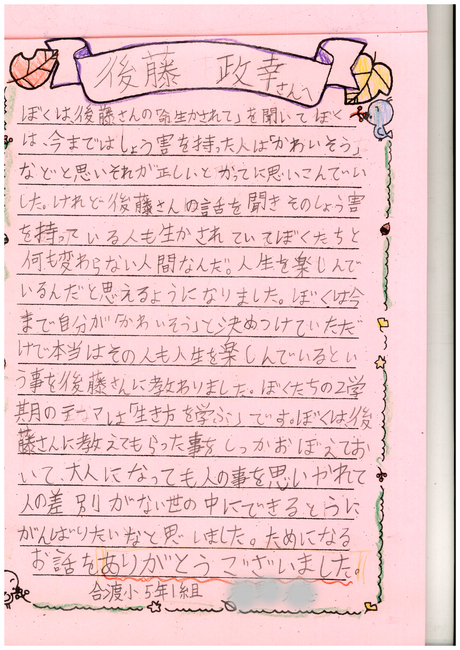 後藤 政幸さんへ
ぼくは、後藤さんの「命生かされて」を聞いてぼく
は、今まではしょう害を持った人は「かわいそう」
などと思いそれが正しいとかってに思いこんでい
した。けれど後藤さんの話を聞きそのしょう害
を持っている人も生かされていてぼくたちと
何も変わらない人間なんだ。人生を楽しんで
いるんだと思えるようになりました。ぼくは今
まで自分が「かわいそう」と決めつけていただ
けで本当はその人も人生を楽しんでいるとい
う事を後藤さんに教わりました。ぼくたちの2学
期のテーマは「生き方を学ぶ」です。ぼくは、後
藤さんに教えてもらった事をしっかおぼえてお
いて、大人になっても人の事を思いやれて
人の差別がない世の中にできるように
がんばりたいなと思いました。ためになる
お話をありがとうございました。
合渡小5年1組